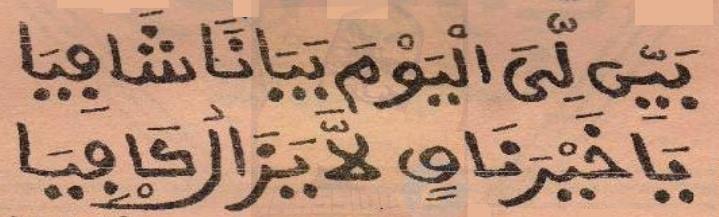 بَيِّن لِّىَ الْيَوْمَ بَيَانًا شَافِيَا
يَا خَيْرَ بَاقٍ لاَّ يَزَالُ كَافِيَا